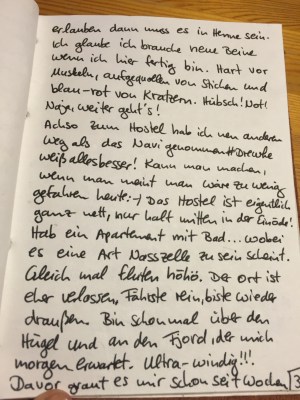 erlauben dann muss es in Henne sein.
Ich glaube ich brauche neue Beine
wenn ich hier fertig bin. Hart vor
Muskeln, aufgequollen von Stichen und
blau-rot von Kratzern. Hübsch! Not!
Naja, weiter geht's!
Achso zum Hostel hab ich nen anderen
Weg als das Navi genommen #Drewke
weiß alles besser! Kann man machen,
wenn man meint man wäre zu wenig
gefahren heute :-) Das Hostel ist eigentlich
ganz nett, nur halt mitten in der Einöde!
Hab ein Apartement mit Bad... wobei
es eine Art Nasszelle zu sein scheint.
Gleich mal fluten höhö. Der Ort ist
eher verlassen, Fährste rein, biste wieder
draußen. Bin schonmal über den
Hügel und an den Fjord, der mich
morgen erwartet. Ultra-windig!!!
Davor graut es mir schon seit Wochen 3